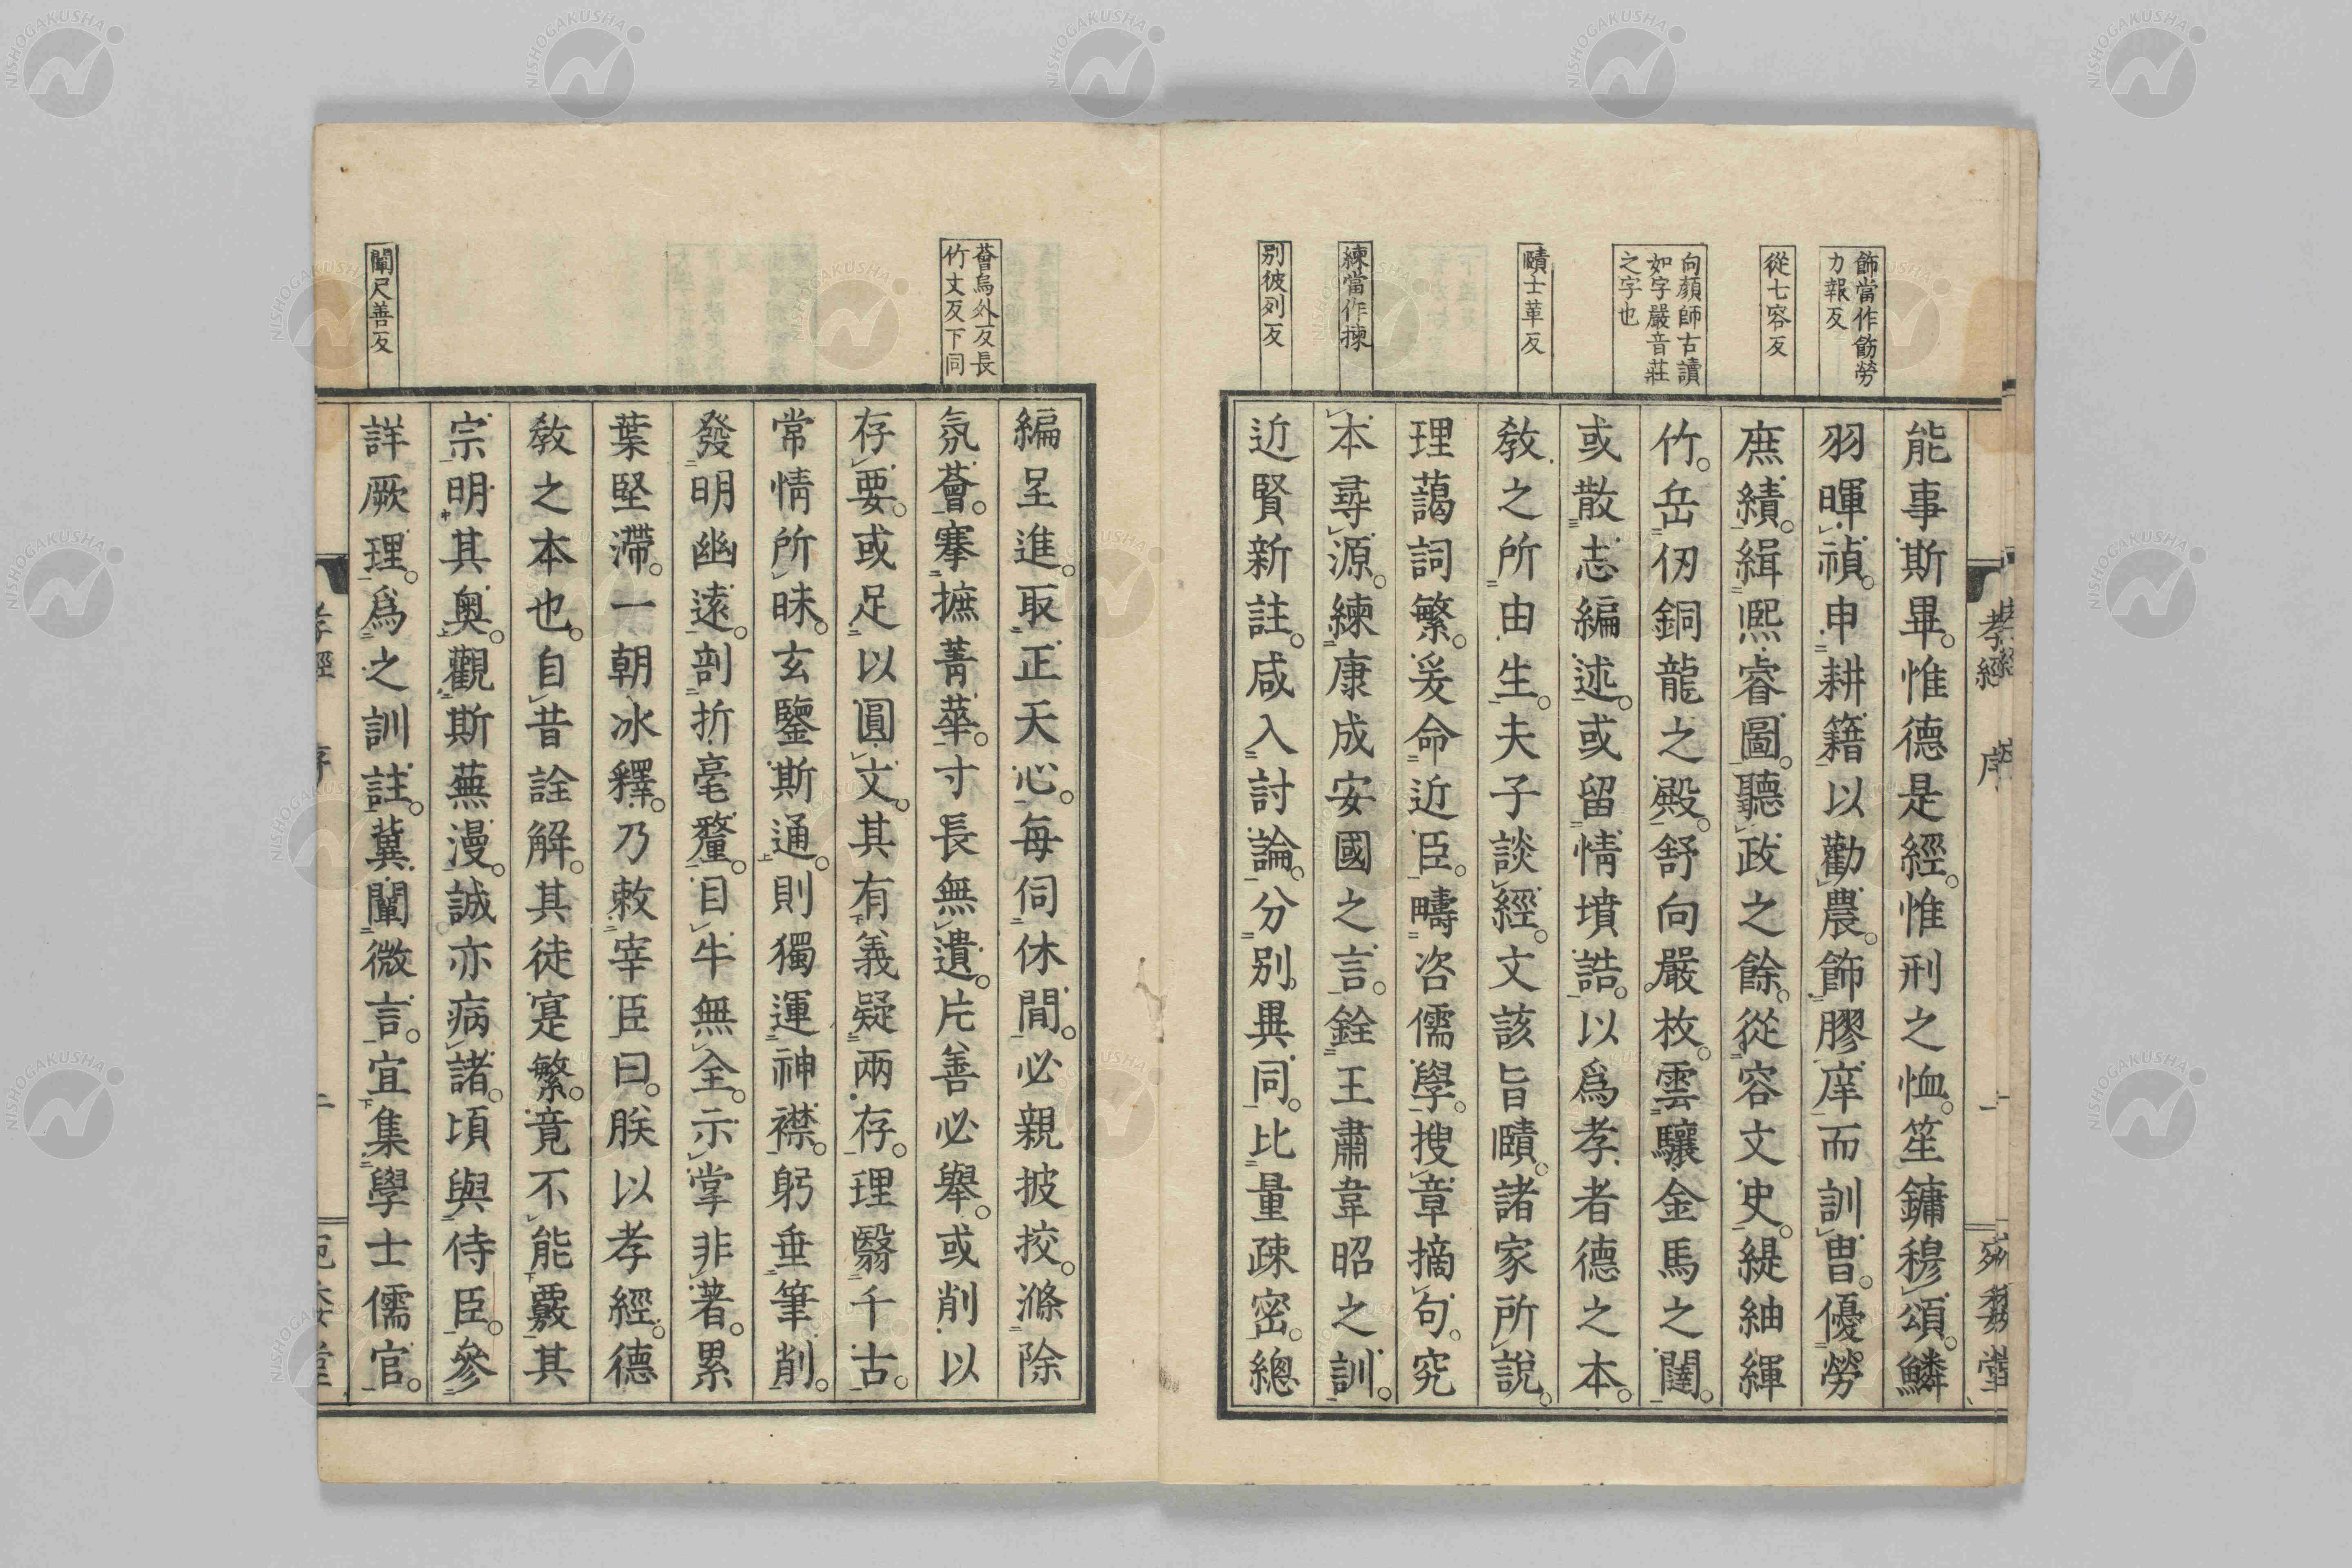 飾當作飭勞
力報反
從七容反
向顏師古讀
如字嚴音莊
之字也
賾士革反
練當作揀
別彼列反
孝經
序
一
能事斯畢。惟德是經。惟刑之恤。笙鏞穆頌。鱗
羽暉禎。申耕籍以勸農。飾膠庠而訓冑。優勞
庶績。緝熙睿圖。聽政之餘。從容文史。緹紬緷
竹。岳仞銅龍之殿。舒向嚴枚。雲驤金馬之闥。
或散志編述。或留情墳誥。以爲孝者德之本。
敎之所由生。夫子談經。文該旨賾。諸家所說。
理藹詞繁。爰命近臣。疇咨儒學。搜章摘句。究
本尋源。練康成安國之言。銓王肅韋昭之訓。
近賢新註。咸入討論。分別異同。比量疎密。總
薈烏外反長
竹丈反下同
闡尺善反
編呈進。取正天心。每伺休閒。必親披挍。滌除
氛薈。搴摭菁華。寸長無遺。片善必舉。或削以
存要。或足以圓文。其有義疑兩存。理翳千古。
常情所昧。玄鑒斯通。則獨運神襟。躬垂筆削。
發明幽遠。剖折毫釐。目牛無全。示掌非著。累
葉堅滯。一朝冰釋。乃敕宰臣曰。朕以孝經。德
敎之本也。自昔詮解。其徒寔繁。竟不能覈其
宗。明其奧。觀斯蕪漫。誠亦病諸。頃與侍臣。參
詳厥理。爲之訓註。冀闡微言。宜集學士儒官。